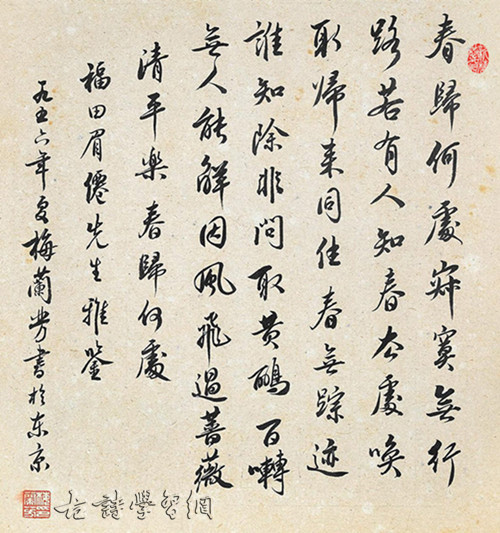 春歸何處寂寞無行
路若有人知春去處喚
取歸来同住春無踪迹
誰知除非問取黄鸝百囀
無人能解因風飛過薔薇
清平樂春歸何處
福田眉僊先生雅鑒
一九五六年夏梅蘭芳書於东京
詩學習網